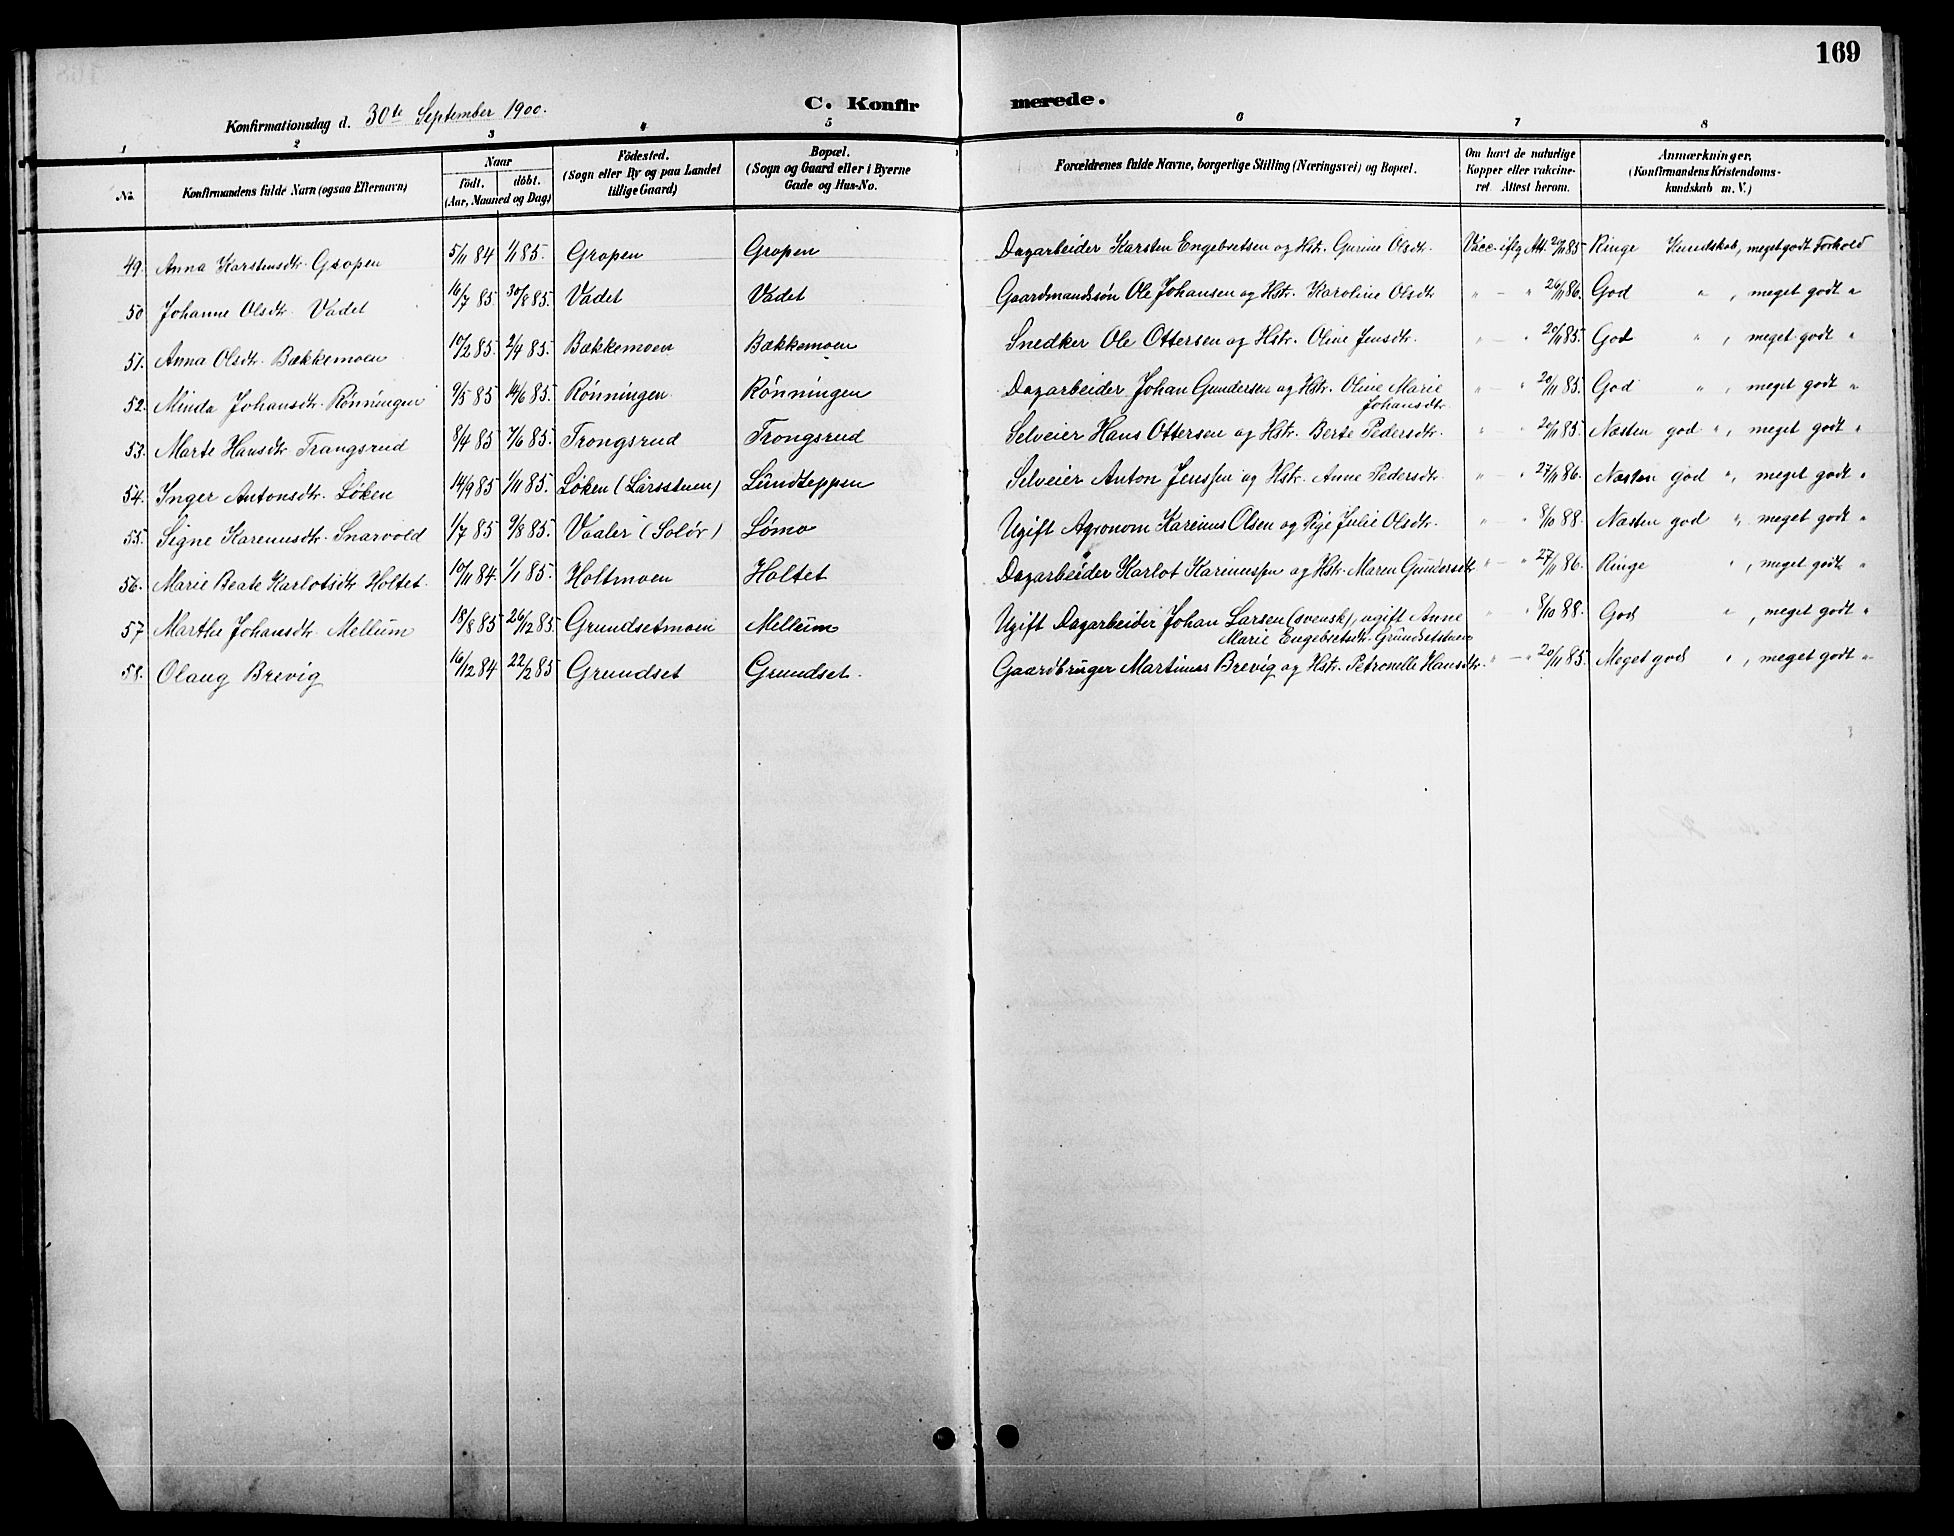 169
Konfirmationsdag d. 30te September 1900.
C. Konfirmerede.
1 2 3 4 5 6 7 8
No. Konfirmandens fulde Navn (ogsaa Efternavn) Naar født. døbt. (Aar, Maaned og Dag) Fødested. (Sogn eller By og paa Landet tillige Gaard) Bopæl. (Sogn og Gaard eller i Byerne Gade og Hus-No. Forældrenes fulde Navne, borgerlige Stilling (Næringsvei) og Bopæl. Om havt de naturlige Kopper eller vakcineret. Attest herom. Anmærkninger. (Konfirmandens Kristendomskundskab m. V.)
49. Anna Karstensdtr. Gropen 5/11 84 1/1 85. Gropen Gropen Dagarbeider Karsten Engebretsen og Hstr. Gurine Olsdtr. Vacc. iflg. Att. 20/11 85 Ringe Kundskab, meget godt Forhold
50 Johanne Olsdtr. Vadet 16/7 85. 30/8 85. Vadet Vadet Gaardmandssøn Ole Johansen og Hstr. Karoline Olsdtr " – " 26/11 86. God " , meget godt "
51. Anna Olsdtr. Bækkemoen 10/2 85. 2/4 85. Bækkemoen Bækkemoen Snedker Ole Ottersen og Hstr. Oline Jensdtr. " – " 20/11 85. God " , meget godt "
52. Minda Johansdtr. Rønningen 9/5 85 14/6 85. Rønningen Rønningen Dagarbeider Johan Gundersen og Hstr. Oline Marie Johansdtr. " – " 20/11 85. God " , meget godt "
53. Marte Hansdtr Trangsrud 8/4 85 7/6 85. Trongsrud Trongsrud Selveier Hans Ottersen og Hstr. Berte Pedersdtr. " – " 20/11 85. Næsten god " , meget godt "
54. Inger Antonsdtr. Løken 14/9 85 1/11 85. Løken (Larsstuen) Lundteppen Selveier Anton Jenssen og Hstr. Anne Pedersdtr. " – " 27/11 86. Næsten god " , meget godt "
55. Signe Karenusdtr. Snarvold 1/7 85 9/8 85. Vaaler (Solør) Lømo Ugift Agronom Karenius Olsen og Pige Julie Olsdtr. " – " 8/10 88. Næsten god " , meget godt "
56. Marie Beate Karlotsdtr Holtet. 10/11 84. 1/1 85. Holtmoen Holtet Dagarbeider Karlot Karinussen og Hstr. Maren Gundersdtr " – " 27/11 86. Ringe " , meget godt "
57 Marthe Johansdtr. Mellum 18/8 85 26/12 85. Grundsetmoen Mellum Ugift Dagarbeider Johan Larsen (svensk), ugift Anne Marie Engebretsdtr. Grundsetstuen " – " 8/10 88. God " , meget godt "
58. Olaug Brevig 16/12 84 22/2 85 Grundset Grundset. Gaardbruger Martinus Brevig og Hstr. Petronelle Hansdtr. " – " 20/11 85. Meget god " , meget godt "